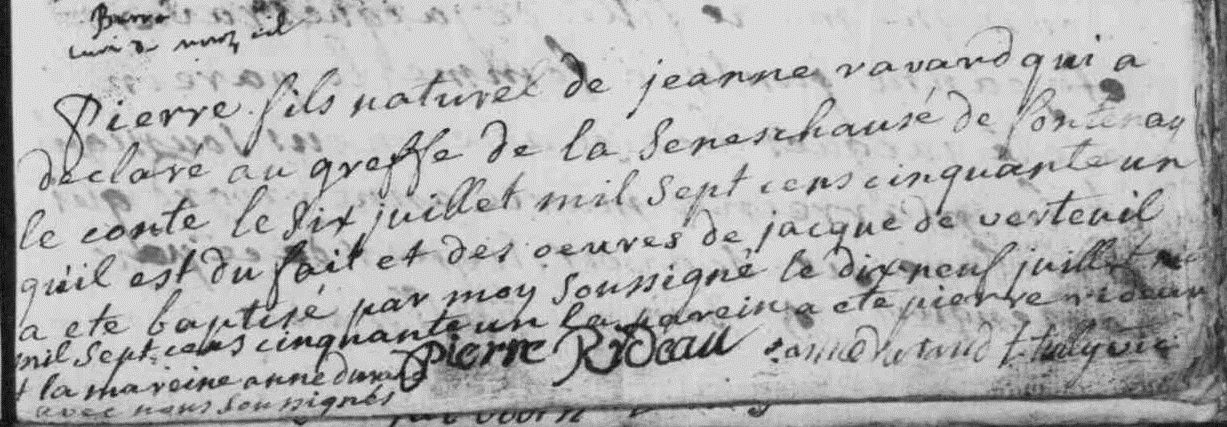 Pierre fils naturel de jeanne ravard qui a
declaré au greffe de la Seneschausé de fontenay
le conte le six juillet mil sept cens cinquante un
quil est du fait et des oeuvres de jacque de verteuil
a ete baptisé par moy soussigné le dix neuf juillet
mil sept cens cinquante un la parein a ete pierre rideau
Pierre Rideau
+ la mareine anne durand
avec nous soussignés